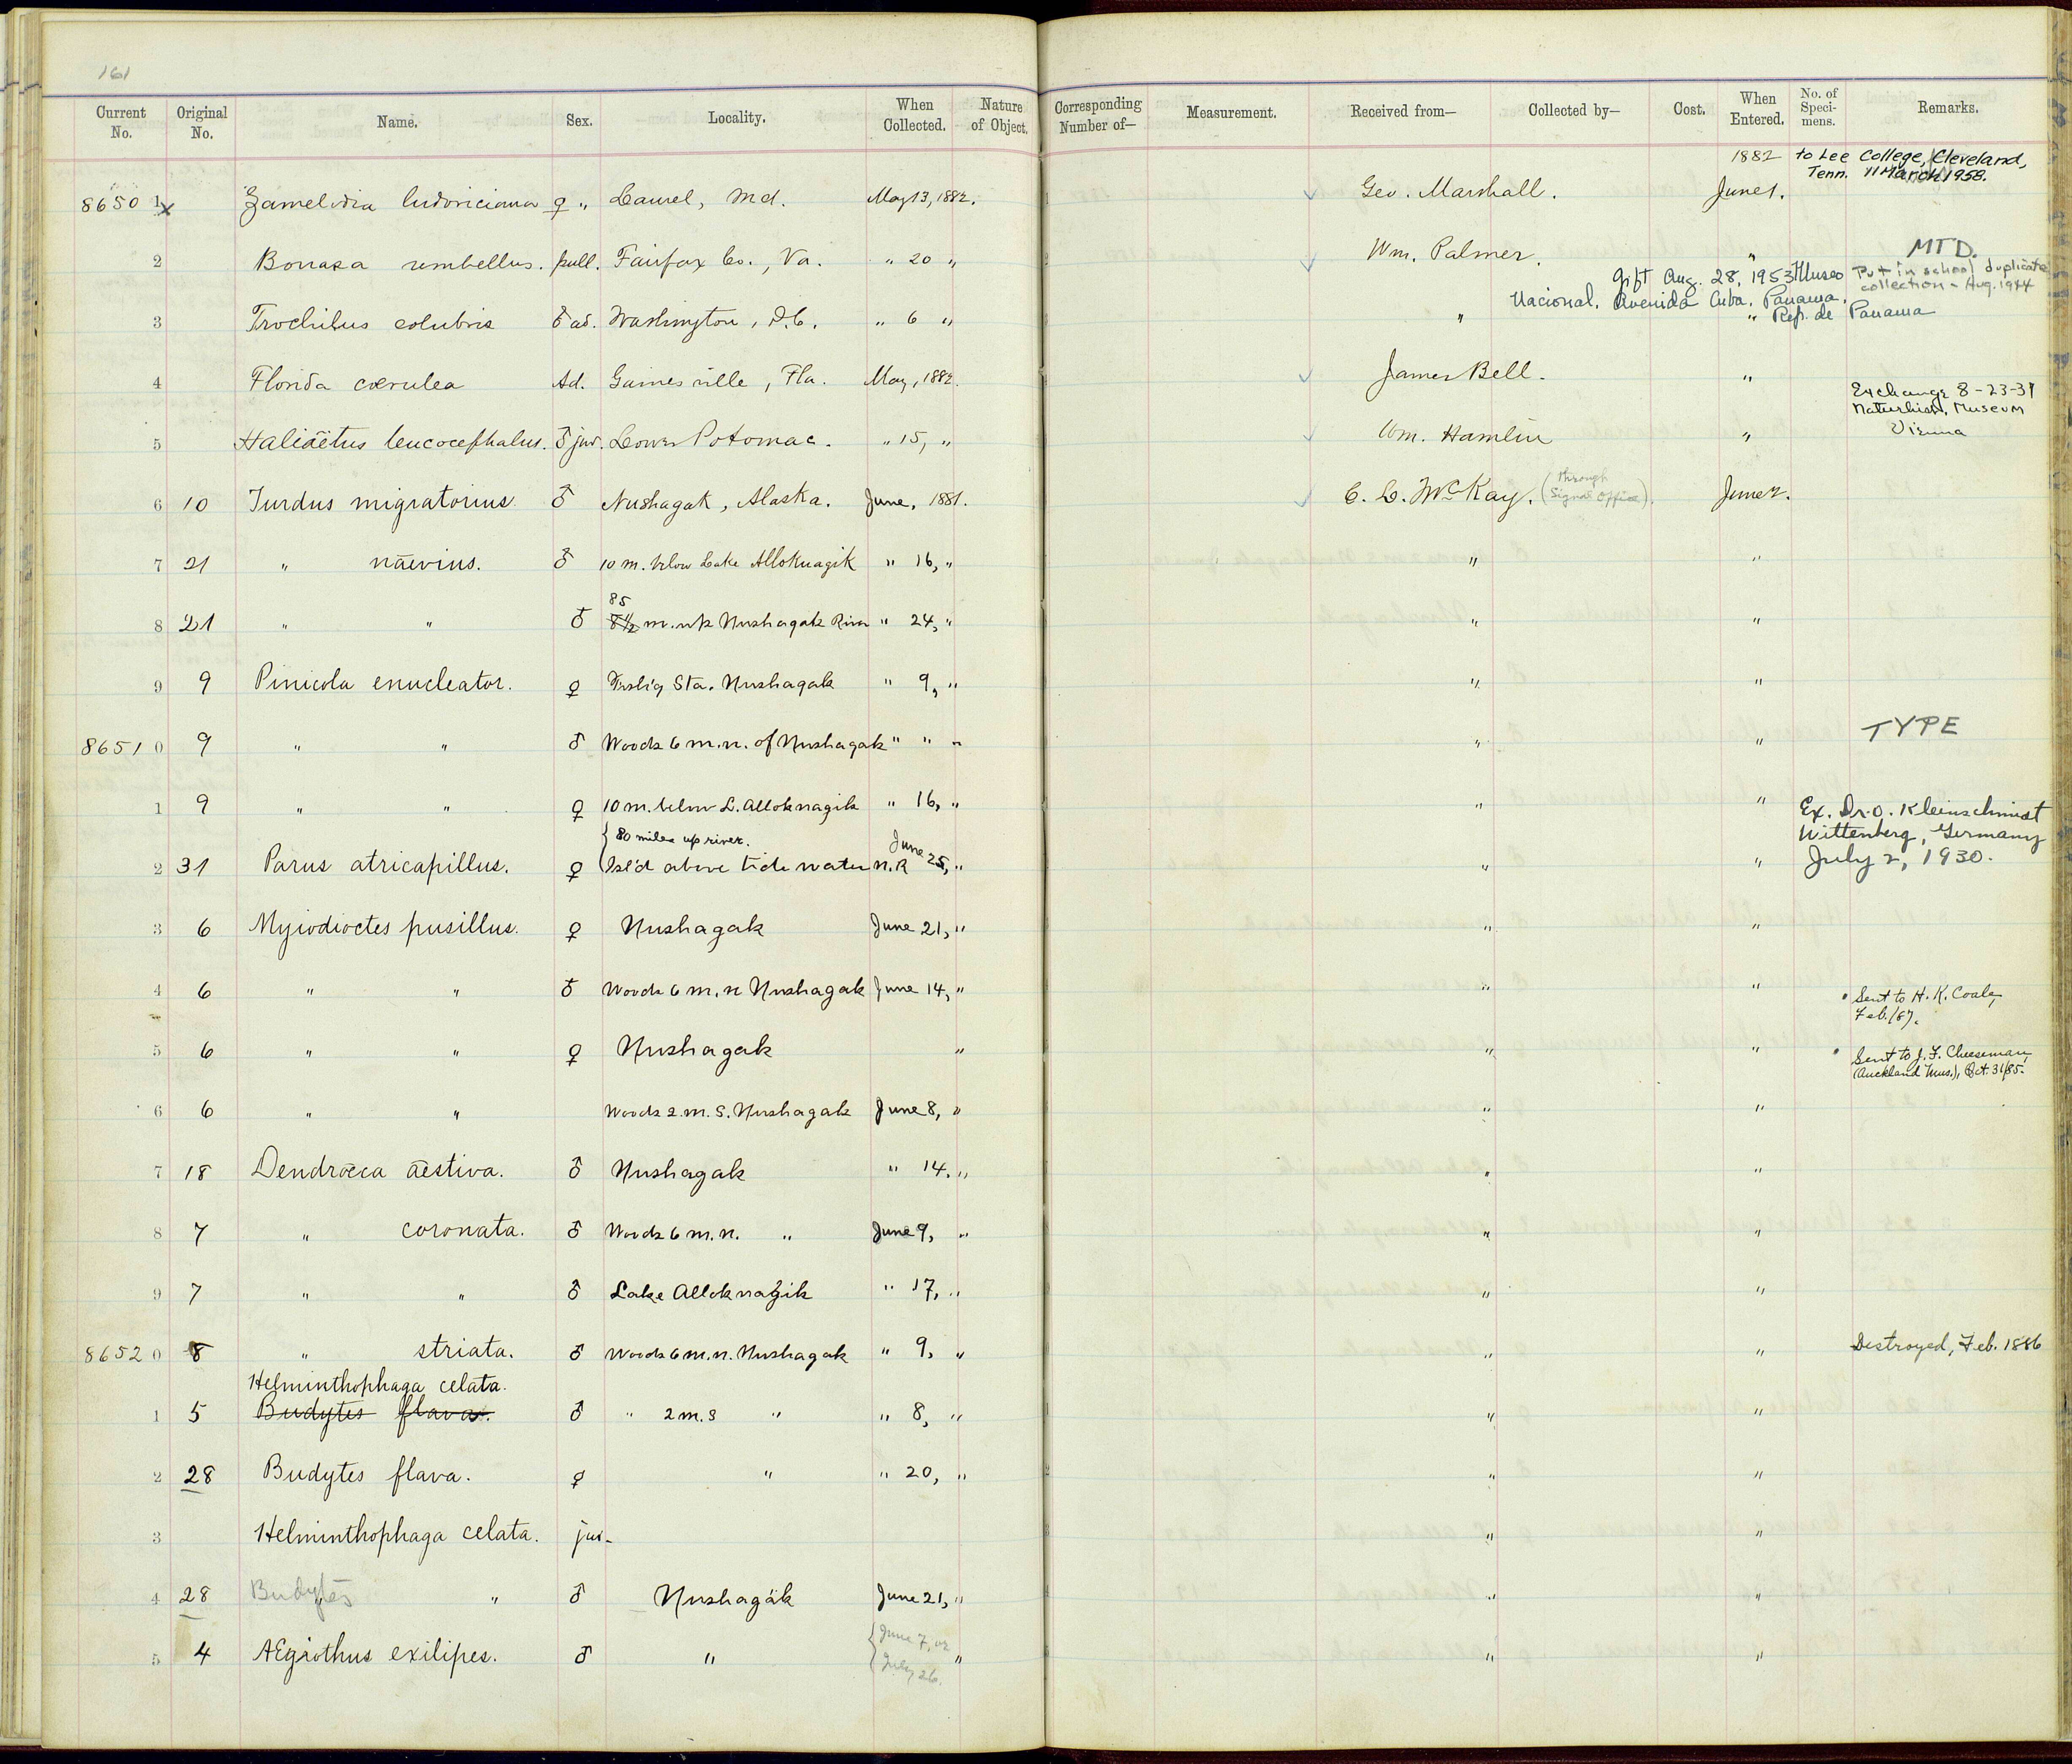 161
Current No. Original No. Name. Sex. Locality. When Collected. Nature of Object. Corresponding Number of— Measurement. Received from— Collected by— Cost. When Entered. No. of Speci- mens. Remarks.
1882 to Lee College, Cleveland,
Tenn. 11 March 1958.
8650 1 x Zamelodia ludoviciana ♀ " Laurel, Md. May 13, 1882. Geo. Marshall. June 1.
2 Bonasa umbellus. pull. Fairfax Co., Va. " 20 " Wm. Palmer. " MTD.
Put in school duplicate
collection - Aug. 1944
Gift Aug. 28, 1953 Museo
Nacional. Avenida Cuba. Panama.
Rep. de Panama
3 Trochilus colubris ♂ ad. Washington, D.C. " 6 " " "
4 Florida cærulea Ad. Gainesville, Fla. May, 1882. James Bell. "
Exchange 8-23-31
Naturhist. Museum
Vienna
5 Haliäetus leucocephalus. ♂ juv. Lower Potomac. " 15, " Wm. Hamlin "
6 10 Turdus migratorius ♂ Nushagak, Alaska. June, 1881. C. L. McKay. (through Signal Office). June 2.
7 21 " nævius. ♂ 10 m. below Lake Alloknagik " 16, " " "
85
8 21 " " ♂ 8½ m. up Nushagak River " 24, " " "
9 9 Pinicola enucleator. ♀ Fish'g Sta. Nushagak " 9, " " "
8651 0 9 " " ♂ Woods 6 m. n. of Nushagak " " " " " TYPE
1 9 " " ♀ 10 m. below L. Alloknagik " 16, " " "
Ex. Dr. O. Kleinschmidt
Wittenberg, Germany
July 2, 1930.
{ 80 miles up river.
2 31 Parus atricapillus. ♀ Isl'd above tide water N.R June 25, " " "
3 6 Myiodioctes pusillus. ♀ Nushagak June 21, " " "
4 6 " " ♂ Woods 6 m. n Nushagak June 14, " " " Sent to H. K. Coale,
Feb./87.
5 6 " " ♀ Nushagak " " " Sent to J. F. Cheeseman,
(Auckland Mus.), Oct. 31/85.
6 6 " " Woods 2. m. S. Nushagak June 8, " " "
7 18 Dendrœca æstiva. ♂ Nushagak " 14. " " "
8 7 " coronata. ♂ Woods 6 m. n. " June 9, " " "
9 7 " " ♂ Lake Alloknagik " 17, " " "
8652 0 8 " striata. ♂ Woods 6 m. n. Nushagak " 9, " " " Destroyed, Feb. 1886
Helminthophaga celata.
1 5 Budytes flava. ♂ " 2 m. s " " 8, " " "
2 28 Budytes flava. ♀ " " 20, " " "
3 Helminthophaga celata. juv. " "
4 28 Budytes " " ♂ Nushagak June 21, " " "
5 4 AEgiothus exilipes. ♂ " { June 7, or July 26. " " "